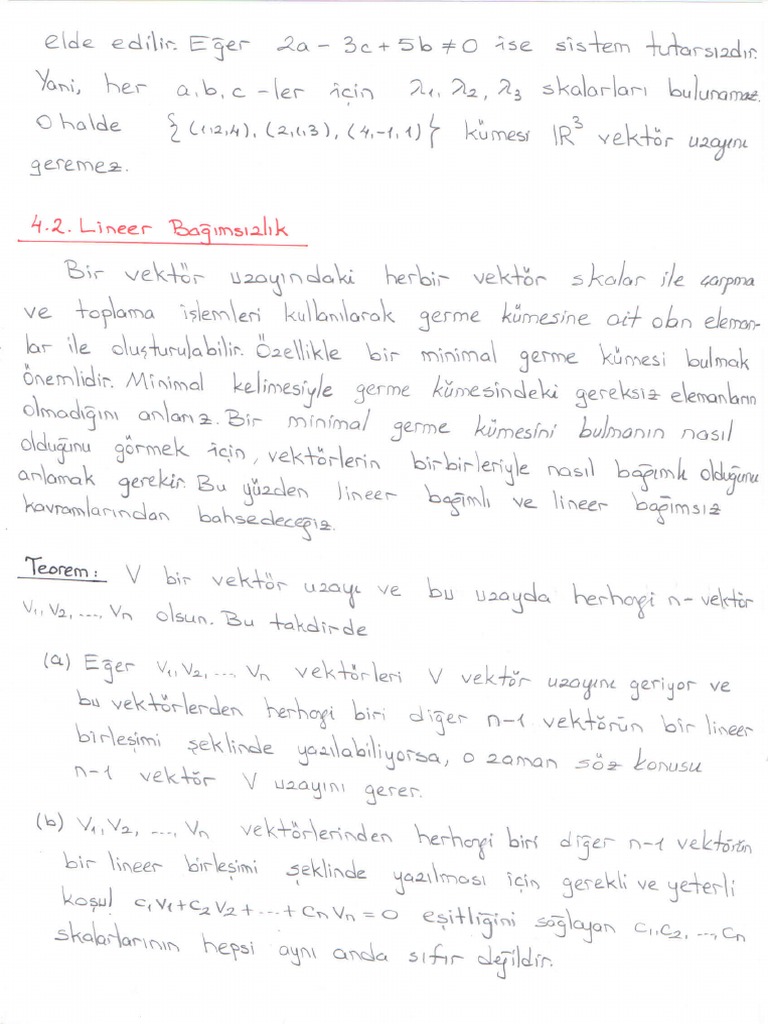 elde edilir. Eğer 2a - 3c + 5b ≠ 0 ise sistem tutarsızdır.
Yani, her a, b, c -ler için λ₁, λ₂, λ₃ skalarları bulunamaz.
O halde {(1,2,4), (2,1,3), (4,-1,1)} kümesi IR³ vektör uzayını
geremez.
4.2. Lineer Bağımsızlık
Bir vektör uzayındaki herbir vektör skalar ile çarpma
ve toplama işlemleri kullanılarak germe kümesine ait olan eleman-
lar ile oluşturulabilir. Özellikle bir minimal germe kümesi bulmak
önemlidir. Minimal kelimesiyle germe kümesindeki gereksiz elemanların
olmadığını anlarız. Bir minimal germe kümesini bulmanın nasıl
olduğunu görmek için, vektörlerin birbirleriyle nasıl bağımlı olduğunu
anlamak gerekir. Bu yüzden lineer bağımlı ve lineer bağımsız
kavramlarından bahsedeceğiz.
Teorem: V bir vektör uzayı ve bu uzayda herhangi n-vektör
v₁, v₂, ..., vₙ olsun. Bu takdirde
(a) Eğer v₁, v₂, ..., vₙ vektörleri V vektör uzayını geriyor ve
bu vektörlerden herhangi biri diğer n-1 vektörün bir lineer
birleşimi şeklinde yazılabiliyorsa, o zaman söz konusu
n-1 vektör V uzayını gerer.
(b) v₁, v₂, ..., vₙ vektörlerinden herhangi biri diğer n-1 vektörün
bir lineer birleşimi şeklinde yazılması için gerekli ve yeterli
koşul c₁v₁+c₂v₂+...+cₙvₙ=0 eşitliğini sağlayan c₁, c₂, ..., cₙ
skalarlarının hepsi aynı anda sıfır değildir.